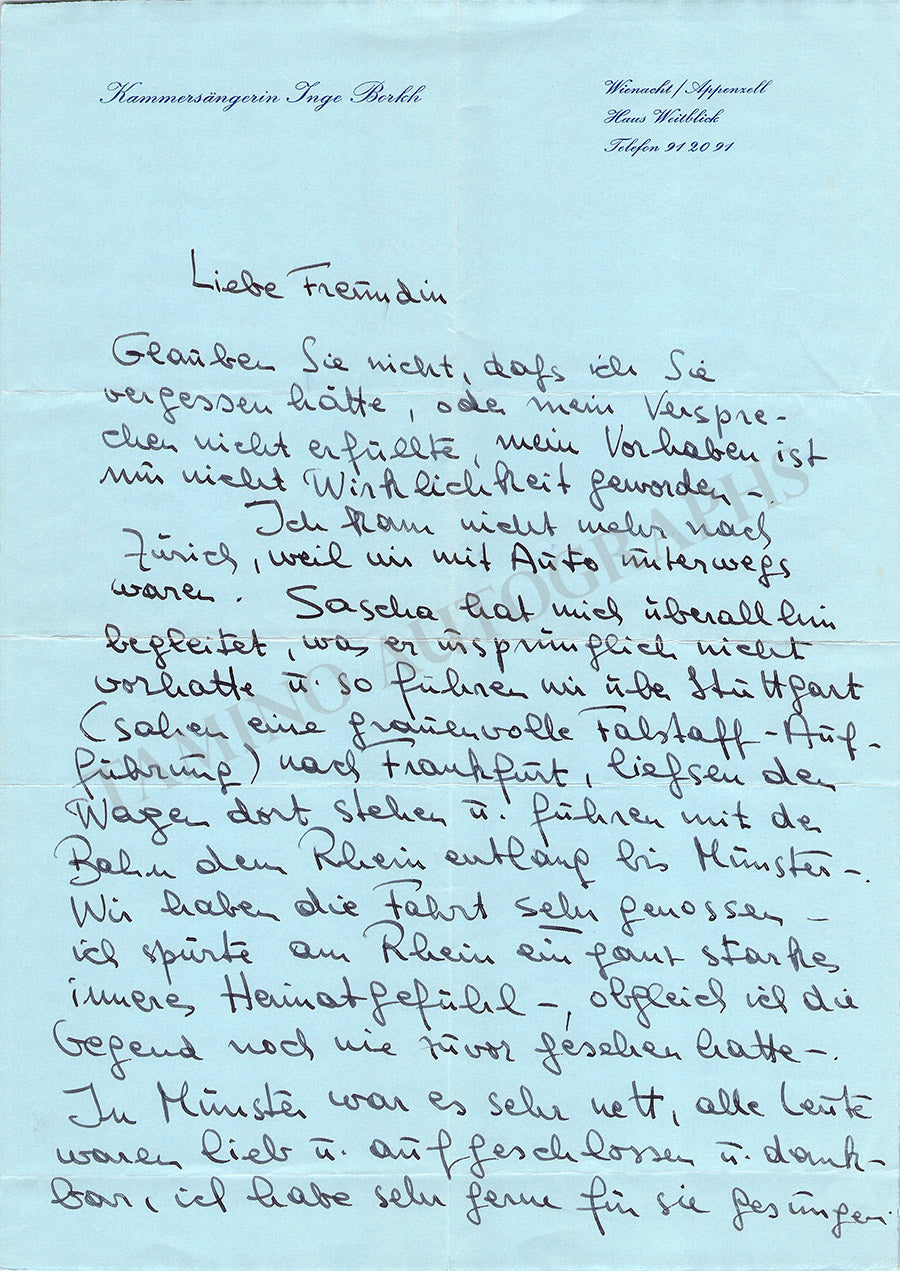 Kammersängerin Inge Borkh
Wienacht / Appenzell
Haus Weitblick
Telefon 91 20 91
Liebe Freundin
Glauben Sie nicht, dafs ich Sie
vergessen hätte, oder mein Verspre-
chen nicht erfüllte, mein Vorhaben ist
nur nicht Wirklichkeit geworden -.
Ich kam nicht mehr nach
Zürich, weil wir mit Auto unterwegs
waren. Sascha hat mich überall hin
begleitet, was er ursprünglich nicht
vorhatte u. so fuhren wir über Stuttgart
(sahen eine grauenvolle Falstaff-Auf-
führung) nach Frankfurt, liefsen den
Wagen dort stehen u. fuhren mit der
Bahn dem Rhein entlang bis Münster -.
Wir haben die Fahrt sehr genossen -
ich spürte am Rhein ein ganz starkes
inneres Heimatgefühl -, obgleich ich die
Gegend noch nie zuvor gesehen hatte -.
In Münster war es sehr nett, alle Leute
waren lieb u. aufgeschlossen u. dank-
bar, ich habe sehr gerne für sie gesungen.
TAMINO AUTOGRAPHS